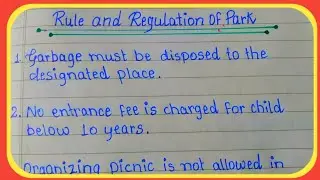 Rule and Regulation Of Park
1. Garbage must be disposed to the
designated place.
2. No entrance fee is charged for child
below 10 years.
Organizing picnic is not allowed in